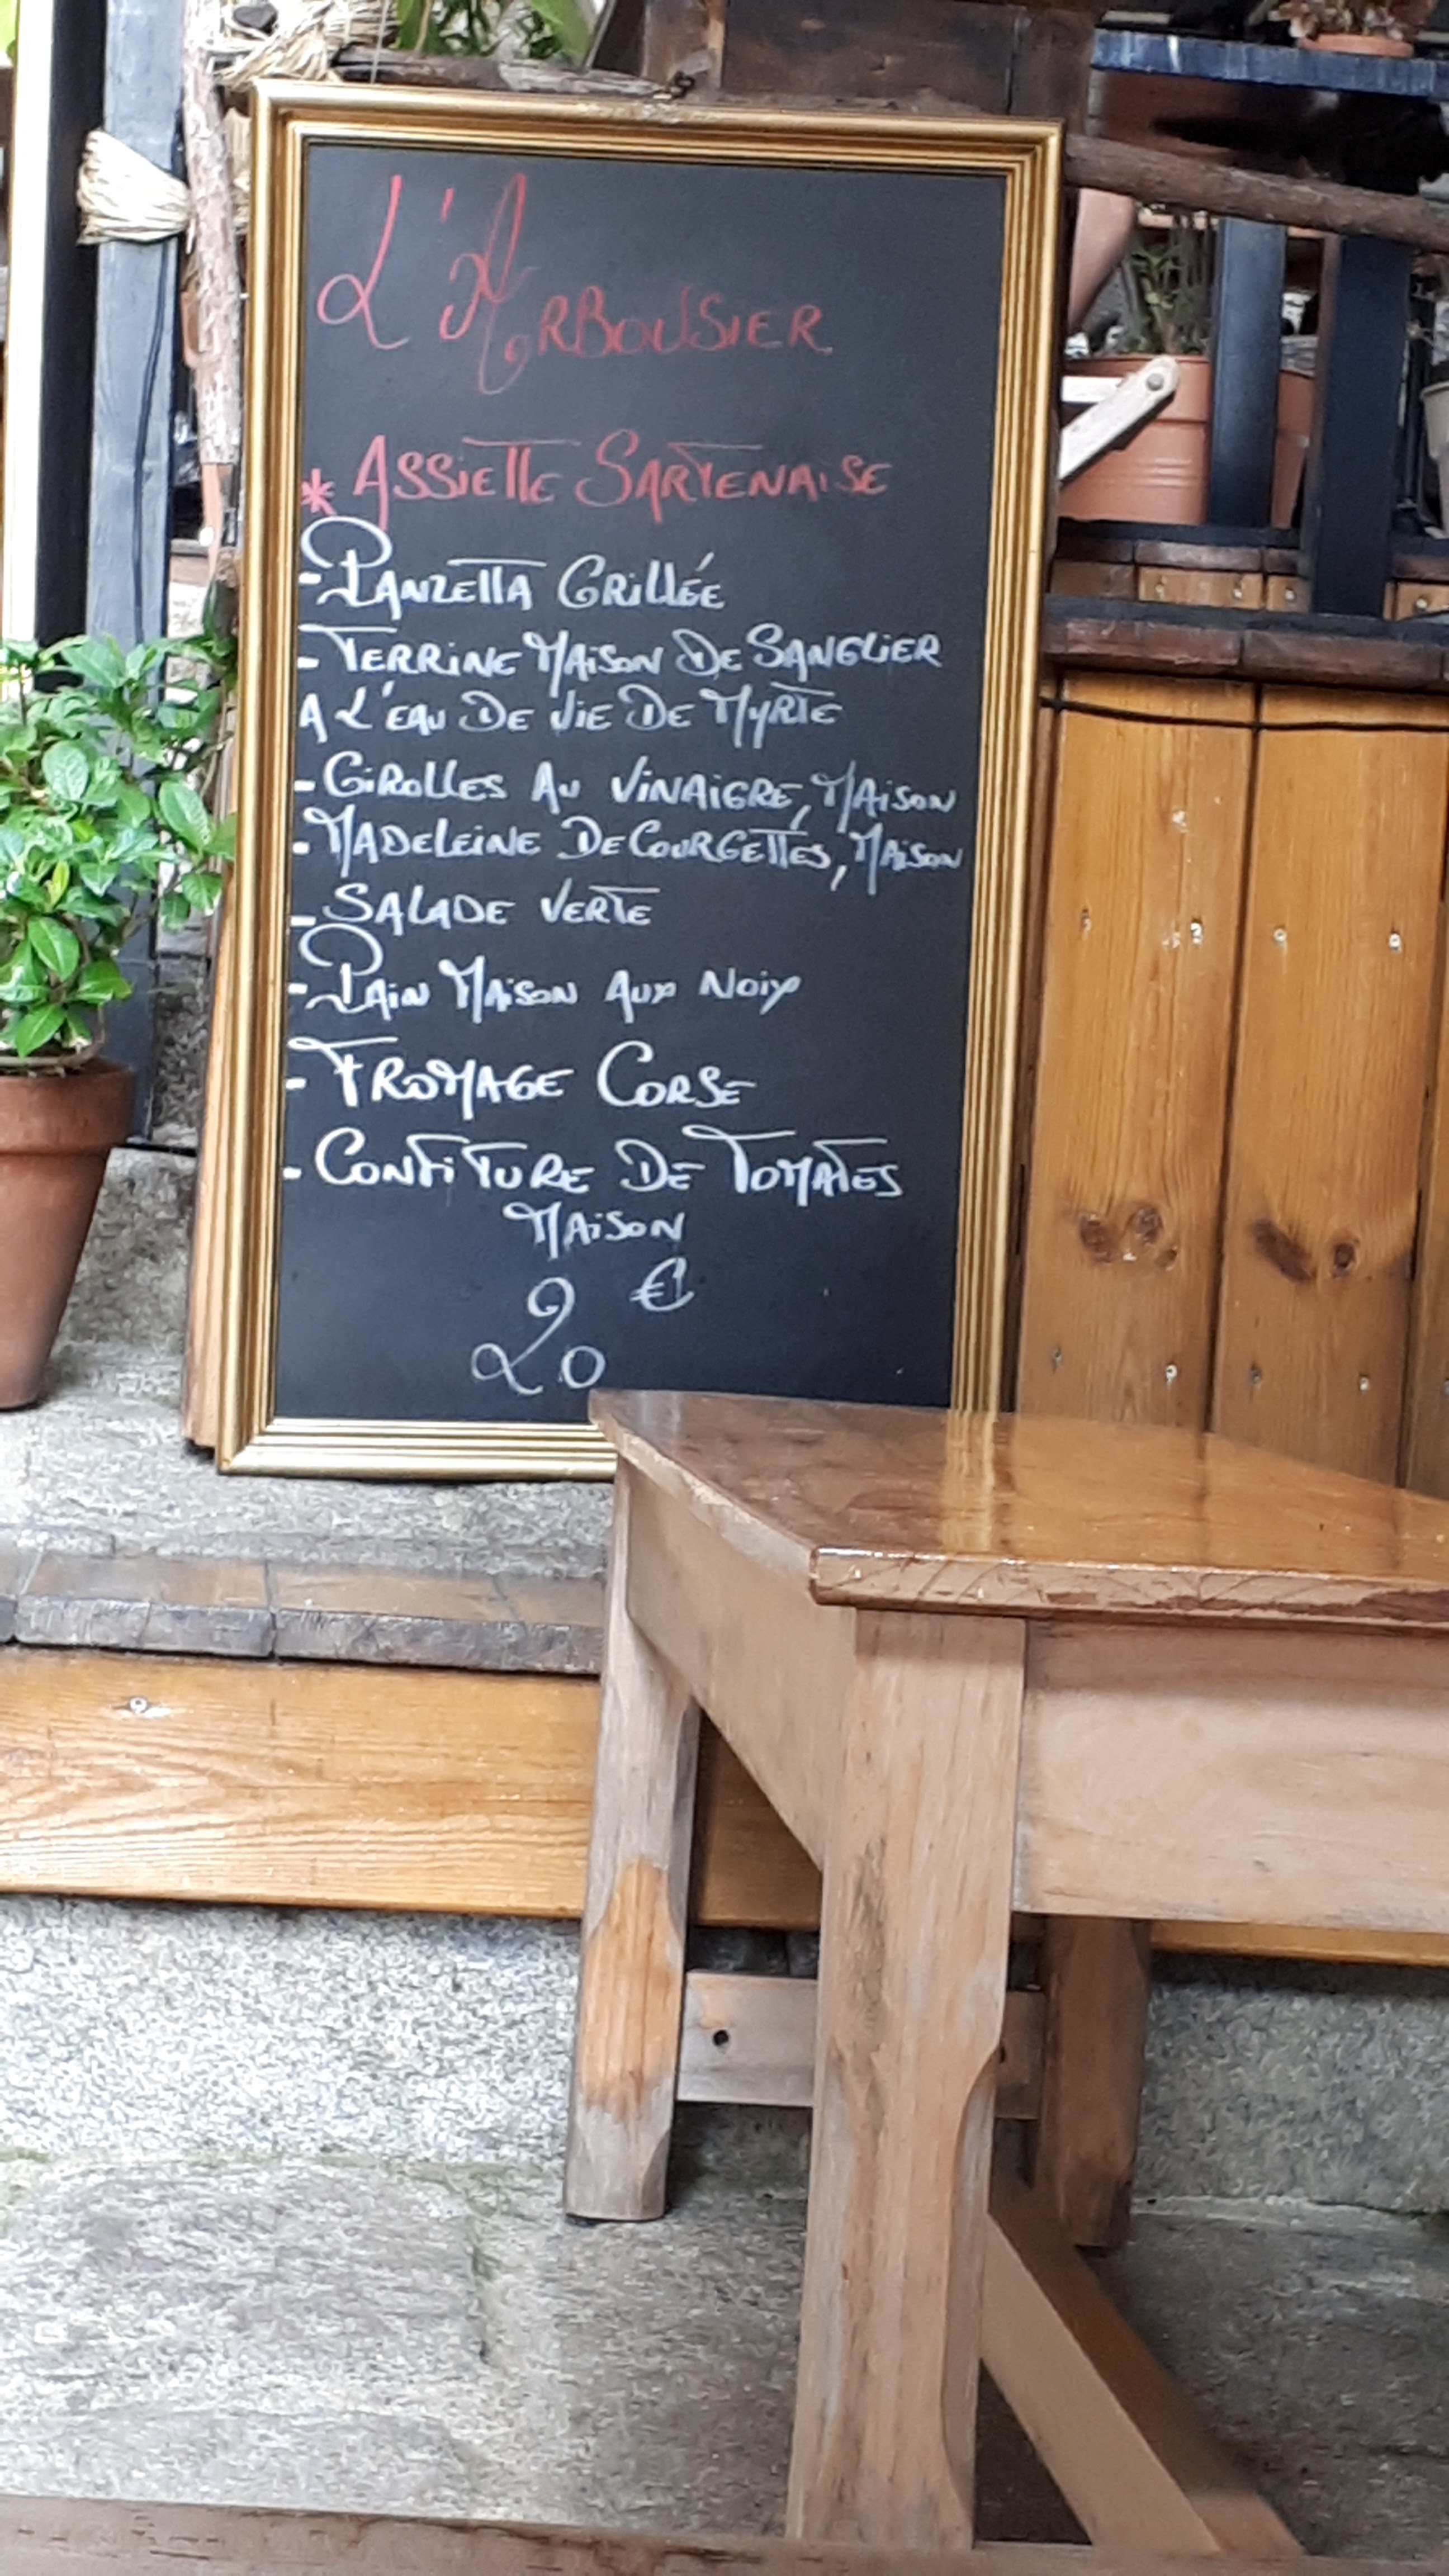 L'ARBOUSIER
* ASSIETTE SARTENAISE
- PANZETTA GRILLÉE
- TERRINE MAISON DE SANGLIER
A L'EAU DE VIE DE MYRTE
- GIROLLES AU VINAIGRE, MAISON
- MADELEINE DE COURGETTES, MAISON
- SALADE VERTE
- PAIN MAISON AUX NOIX
- FROMAGE CORSE
- CONFITURE DE TOMATES
MAISON
20 €